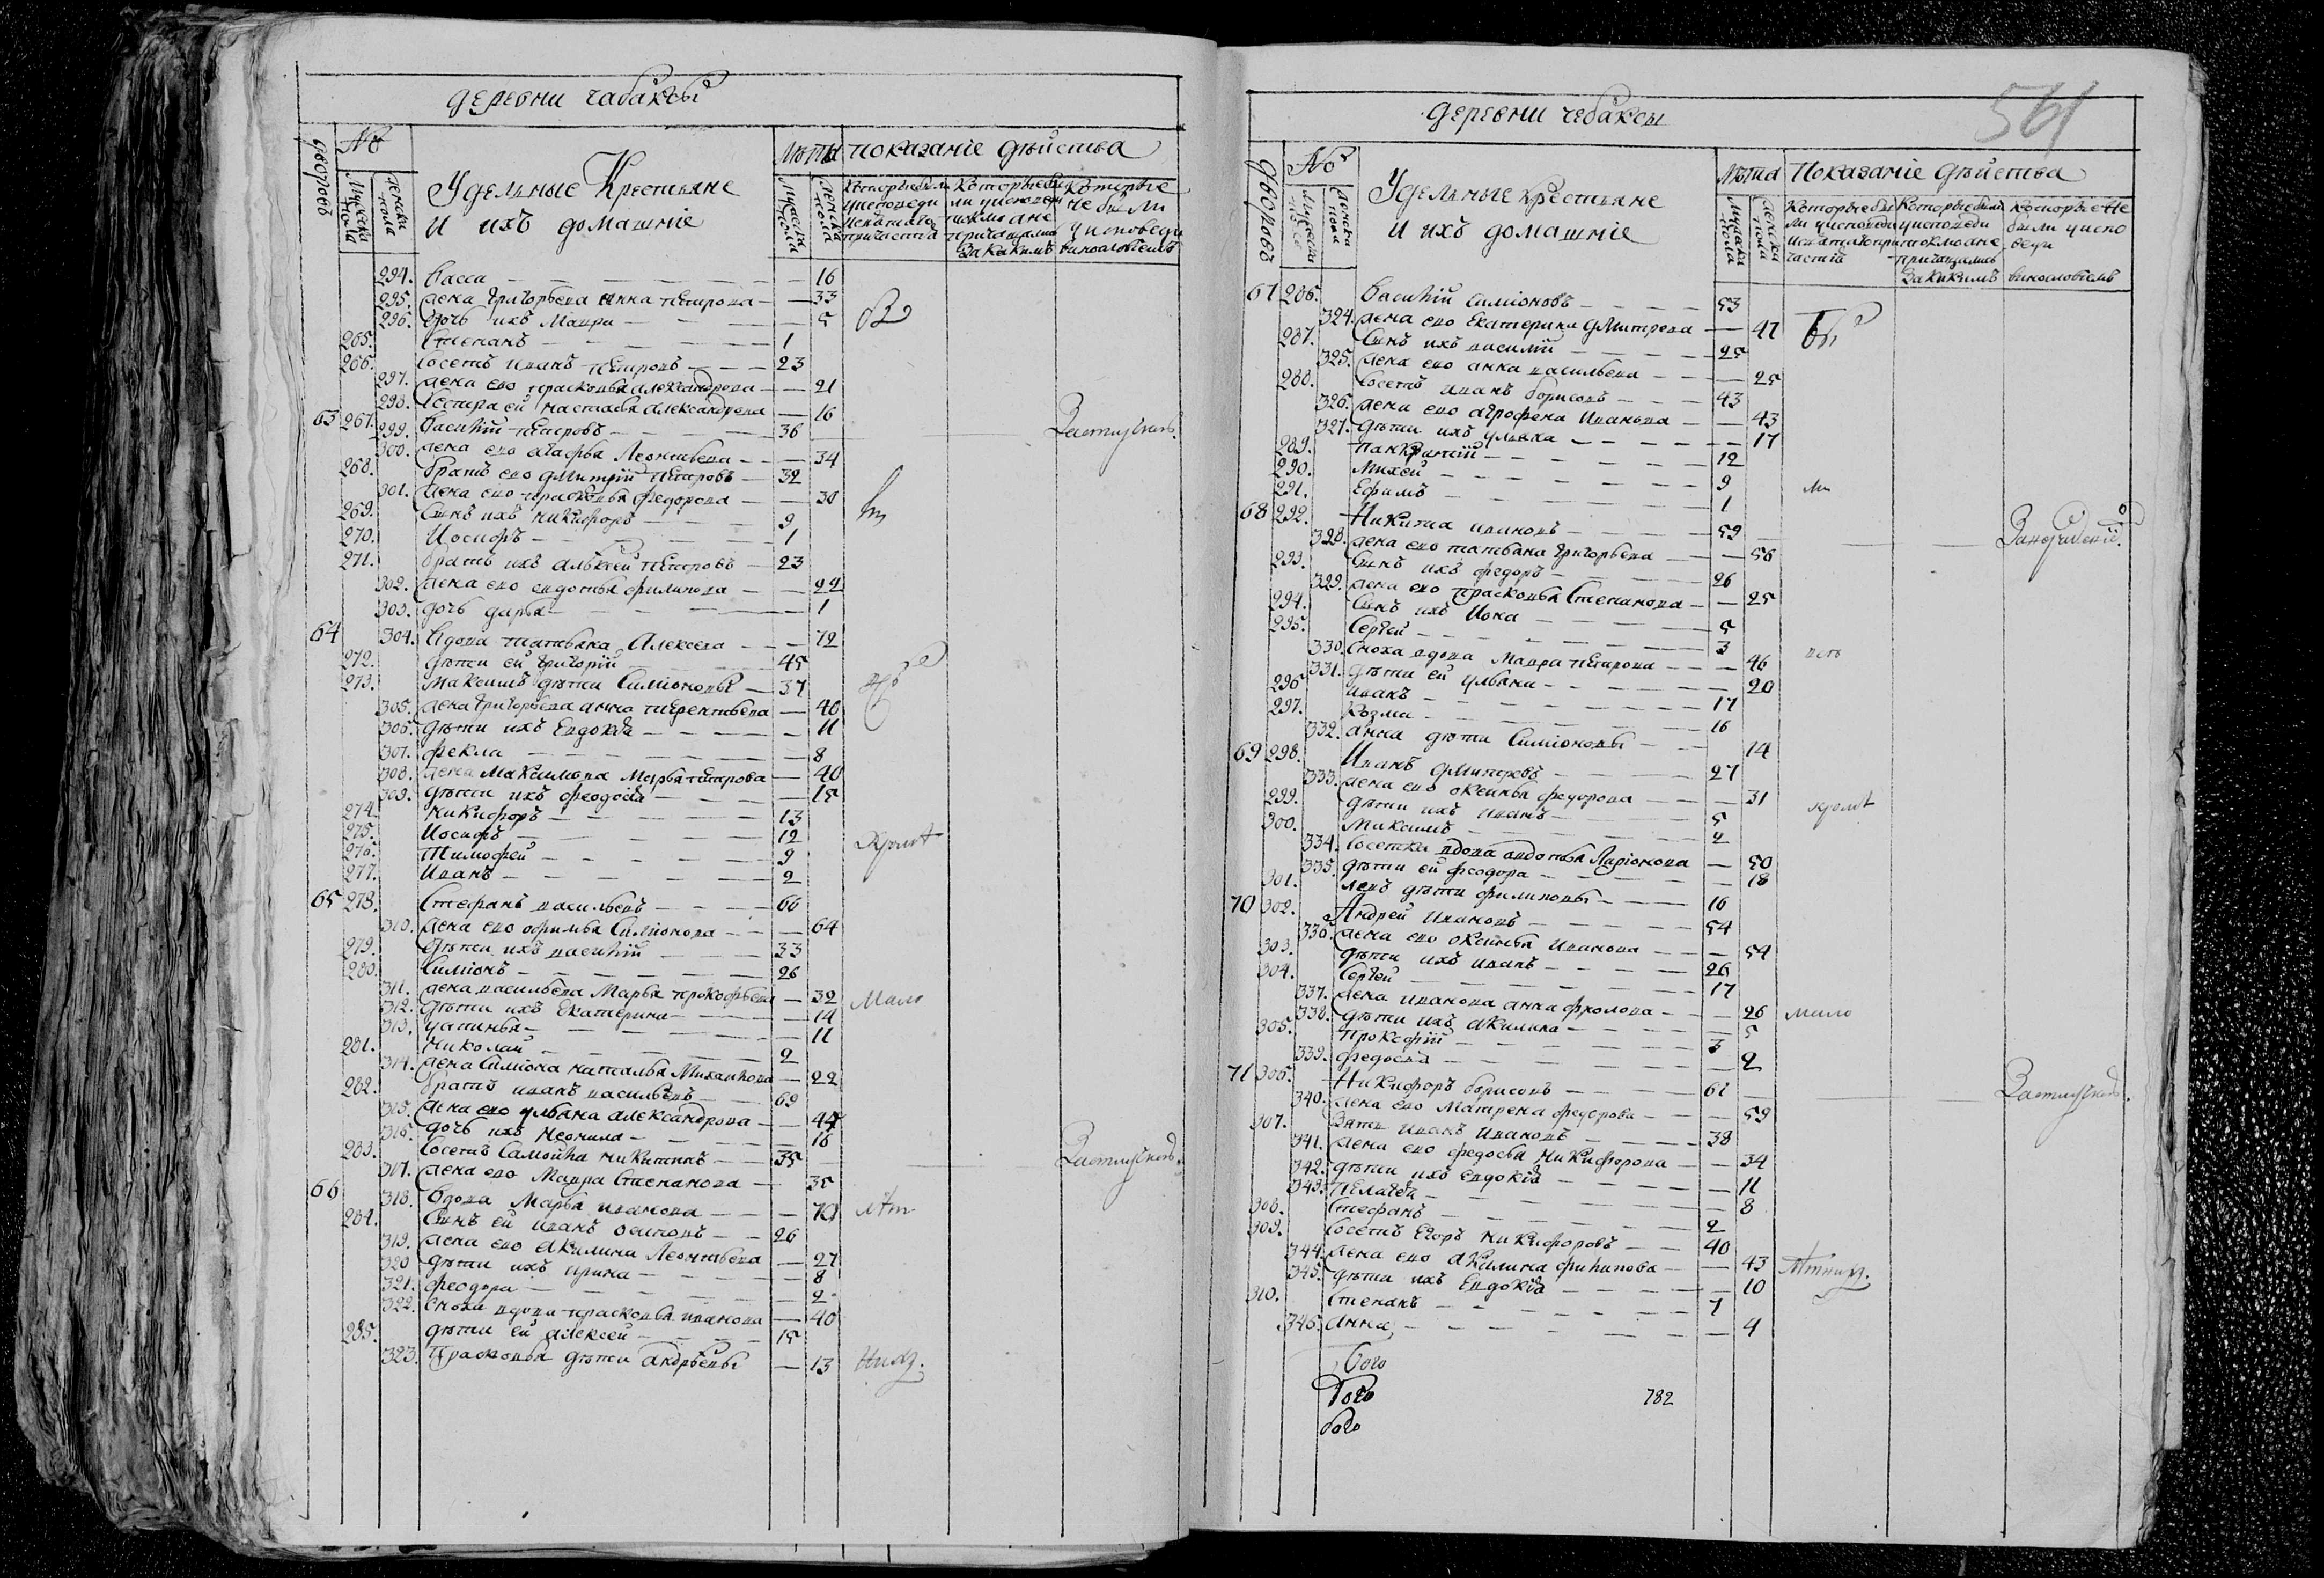 деревни чабаксы
дворовъ
№
Мужеска пола
Женска пола
Удельные Крестьяне
и ихъ домашніе
Лѣта
Мужеска пола
Женска пола
показаніе дѣйства
Которые были у исповеди и святаго причастія
Которые были у исповеди токмо а не причащались За какимъ
Которые не были у исповеди
винословіемъ
294. Васса — 16
295. жена Григорьева Анна Петрова — 33
296. дочь ихъ Мавра — 5
265. Степанъ — 1
266. Соседъ иванъ Петровъ — 23
297. жена ево Прасковья Александрова — 21
298. Сестра ей Настасья Александрова — 16
63 267. Василій Петровъ — 36
299. 300. жена ево агафья Леонтьева — 34
268. братъ ево дмитрій Петровъ — 32
301. жена ево прасковья федорова — 30
269. Сынъ ихъ никифоръ — 9
270. Иосифъ — 1
271. братъ ихъ алексей Петровъ — 23
302. жена ево евдотья филипова — 22
303. дочь дарья — 1
64 304. Вдова татьяна Алексеева — 72
272. дѣти ей Григорій — 45
273. Максимъ дѣти Симіоновы — 37
305. жена Григорьева анна терентьева — 40
306. дѣти ихъ Евдокіа — 11
307. фекла — 8
308. жена Максимова Марья Петрова — 40
309. дѣти ихъ феодосіа — 15
274. Никифоръ — 13
275. Иосифъ — 12
276. Тимофей — 9
277. Иванъ — 2
65 278. Стефанъ васильевъ — 66
310. жена ево офимья Симіонова — 64
279. дѣти ихъ василій — 33
280. Симіонъ — 26
311. жена васильева Марья прокофьева — 32
312. дѣти ихъ Екатерина — 14
313. устинья — 11
281. Николай — 2
314. жена Симіона наталья Михайлова — 22
282. братъ иванъ васильевъ — 69
315. жена ево ульяна александрова — 44
316. дочь ихъ неонила — 16
283. Соседъ Самойла никитинъ — 35
317. жена ево Мавра Степанова — 35
66 318. Вдова Марья иванова — 70
284. Сынъ ей иванъ осиповъ — 26
319. жена ево акилина Леонтьева — 27
320 дѣти ихъ ирина — 8
321. феодора — 2
322. сноха вдова прасковья иванова — 40
285. дѣти ей алексей — 15
323. Прасковья дѣти андрѣевы — 13
Мало
деревни чебаксы
561
дворовъ
№
Мужеска пола
Женска пола
Удельные крестьяне
и ихъ домашніе
Лѣта
Мужеска пола
Женска пола
Показаніе дѣйства
Которые были у исповеди и святаго причастія
Которые были у исповеди токмо а не причащались За какимъ
которые не были у исповеди
винословіемъ
67 286. Василій симіоновъ — 53
324. жена ево Екатерина дмитрева — 47
287. Сынъ ихъ василій — 25
325. жена ево анна васильева — 25
288. Соседъ иванъ борисовъ — 43
326. жена ево агрофена Иванова — 43
327. дѣти ихъ ульяна — 17
289. панкратий — 12
290. Михей — 9
291. Ефимъ — 1
68 292. Никита ивановъ — 59
328. жена ево татьяна григорьева — 56
293. Сынъ ихъ федоръ — 26
329. жена ево прасковья Степанова — 25
294. Сынъ ихъ Иона — 5
295. Сергей — 3
330. Сноха вдова Мавра петрова — 46
331. дѣти ей ульяна — 20
296 иванъ — 17
297. козма — 16
332. анна дѣти Симіоновы — 14
69 298. Иванъ дмитревъ — 27
333. жена ево оксинья федорова — 31
299. дѣти ихъ иванъ — 5
300. Максимъ — 2
334. Соседка вдова авдотья Ларіонова — 50
335. дѣти ей феодора — 18
301. левъ дѣти филиповы — 16
70 302. Андрей ивановъ — 54
336. жена ево оксинья иванова — 54
303. дѣти ихъ иванъ — 26
304. Сергей — 17
337. жена иванова анна фролова — 26
338. дѣти ихъ акилина — 5
305. Прокофій — 3
339. федосіа — 2
71 306. Никифоръ борисовъ — 61
340. жена ево Матрена федорова — 59
307. Зять иванъ ивановъ — 38
341. жена ево федосья никифорова — 34
342. дѣти ихъ евдокіа — 11
343. Пелагея — 8
308. Стефанъ — 2
309. Соседъ Егоръ никифоровъ — 40
344. жена ево акилина филипова — 43
345. дѣти ихъ Евдокіа — 10
310. Степанъ — 7
346. Анна — 4
мало
782